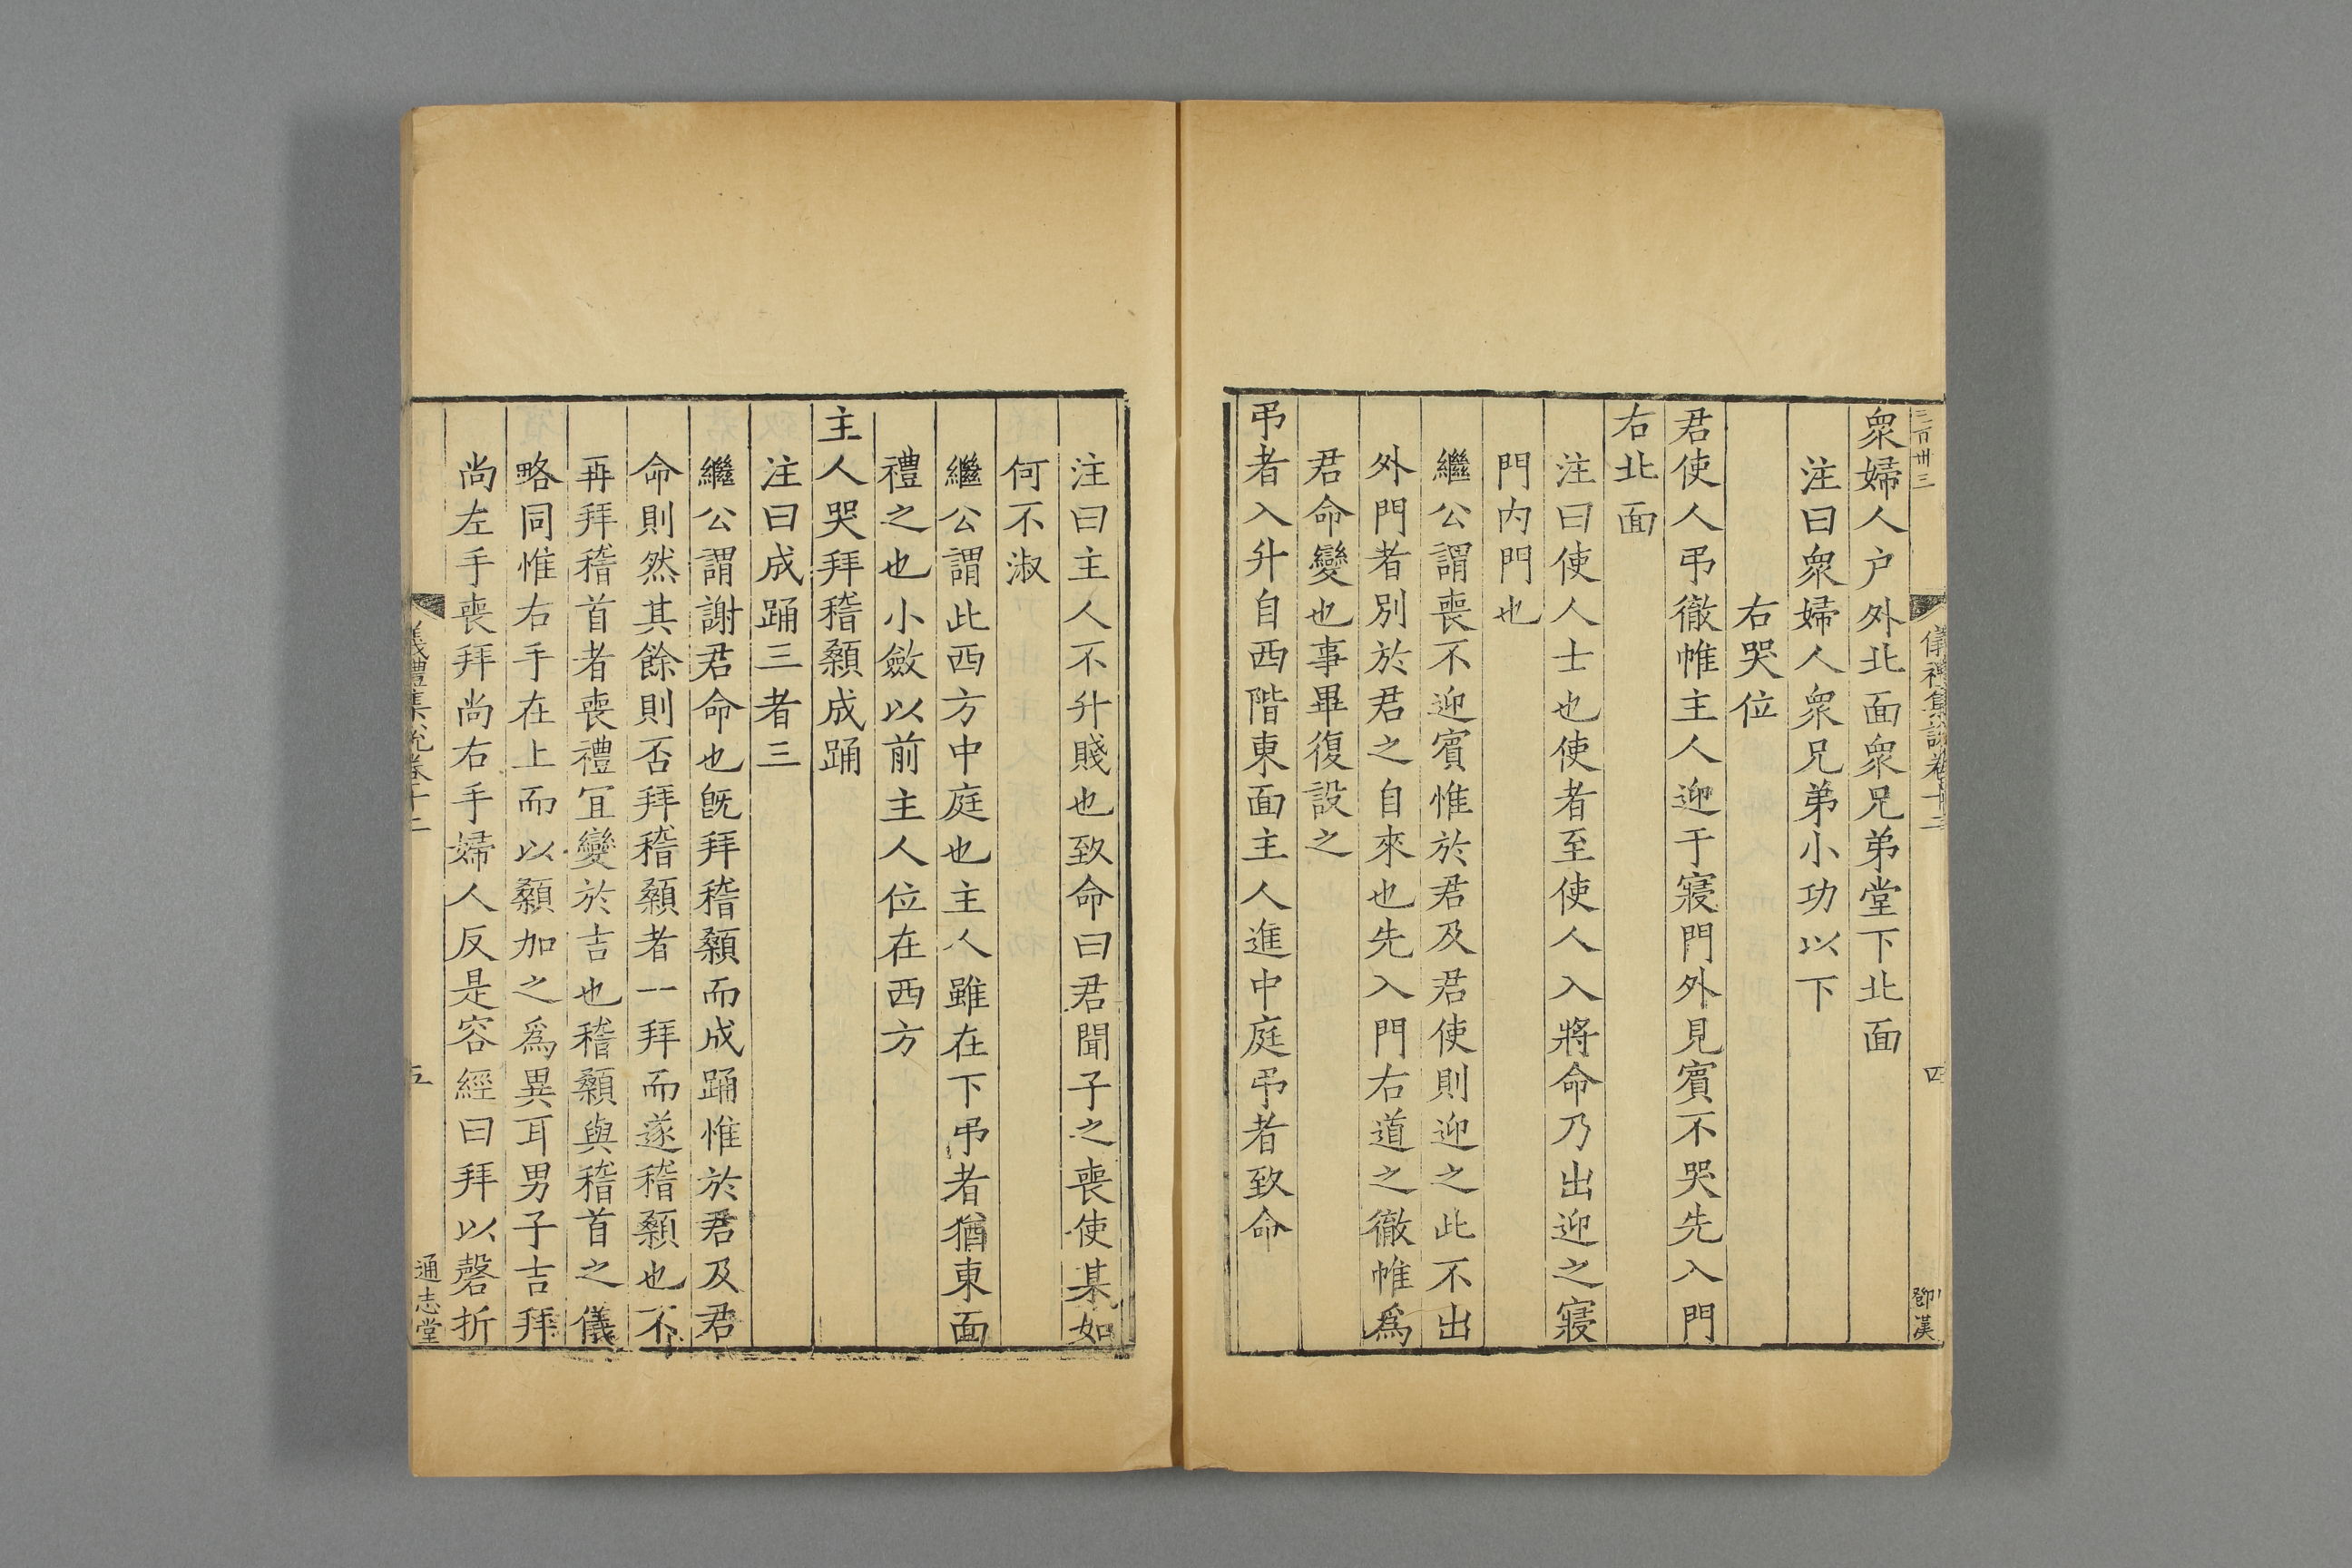 三百卅三
儀禮集說卷十二
四
衆婦人户外北面衆兄弟堂下北面
注曰衆婦人衆兄弟小功以下
右哭位
君使人弔徹帷主人迎于寢門外見賓不哭先入門
右北面
注曰使人士也使者至使人入將命乃出迎之寢
門内門也
繼公謂喪不迎賓惟於君及君使則迎之此不出
外門者別於君之自來也先入門右道之徹帷爲
君命變也事畢復設之
弔者入升自西階東面主人進中庭弔者致命
注曰主人不升賤也致命曰君聞子之喪使某如
何不淑
繼公謂此西方中庭也主人雖在下弔者猶東面
禮之也小斂以前主人位在西方
主人哭拜稽顙成踊
注曰成踊三者三
繼公謂謝君命也旣拜稽顙而成踊惟於君及君
命則然其餘則否拜稽顙者一拜而遂稽顙也不
再拜稽首者喪禮冝變於吉也稽顙與稽首之儀
略同惟右手在上而以顙加之爲異耳男子吉拜
尚左手喪拜尚右手婦人反是容經曰拜以磬折
儀禮集說卷十二
五
通志堂